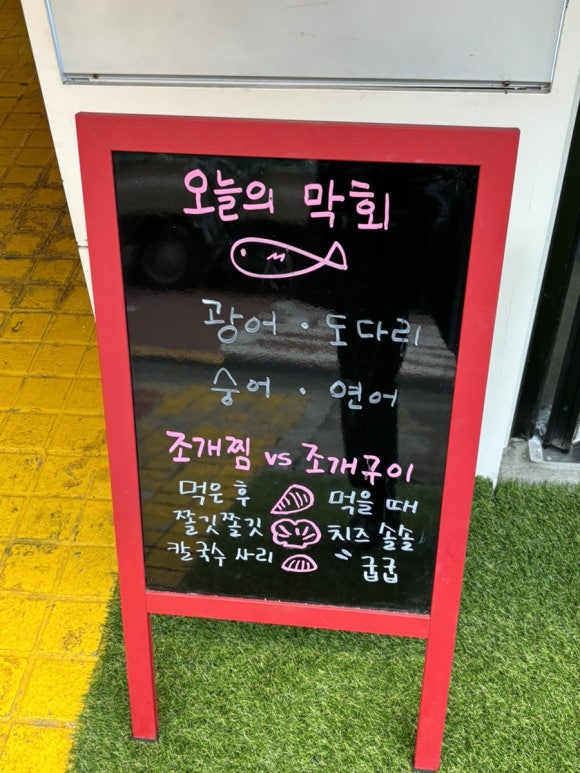 오늘의 막회
광어 · 도다리
숭어 · 연어
조개찜 vs 조개구이
먹은 후 먹을 때
쫄깃쫄깃 치즈 솔솔
칼국수 사리 〃 굽굽